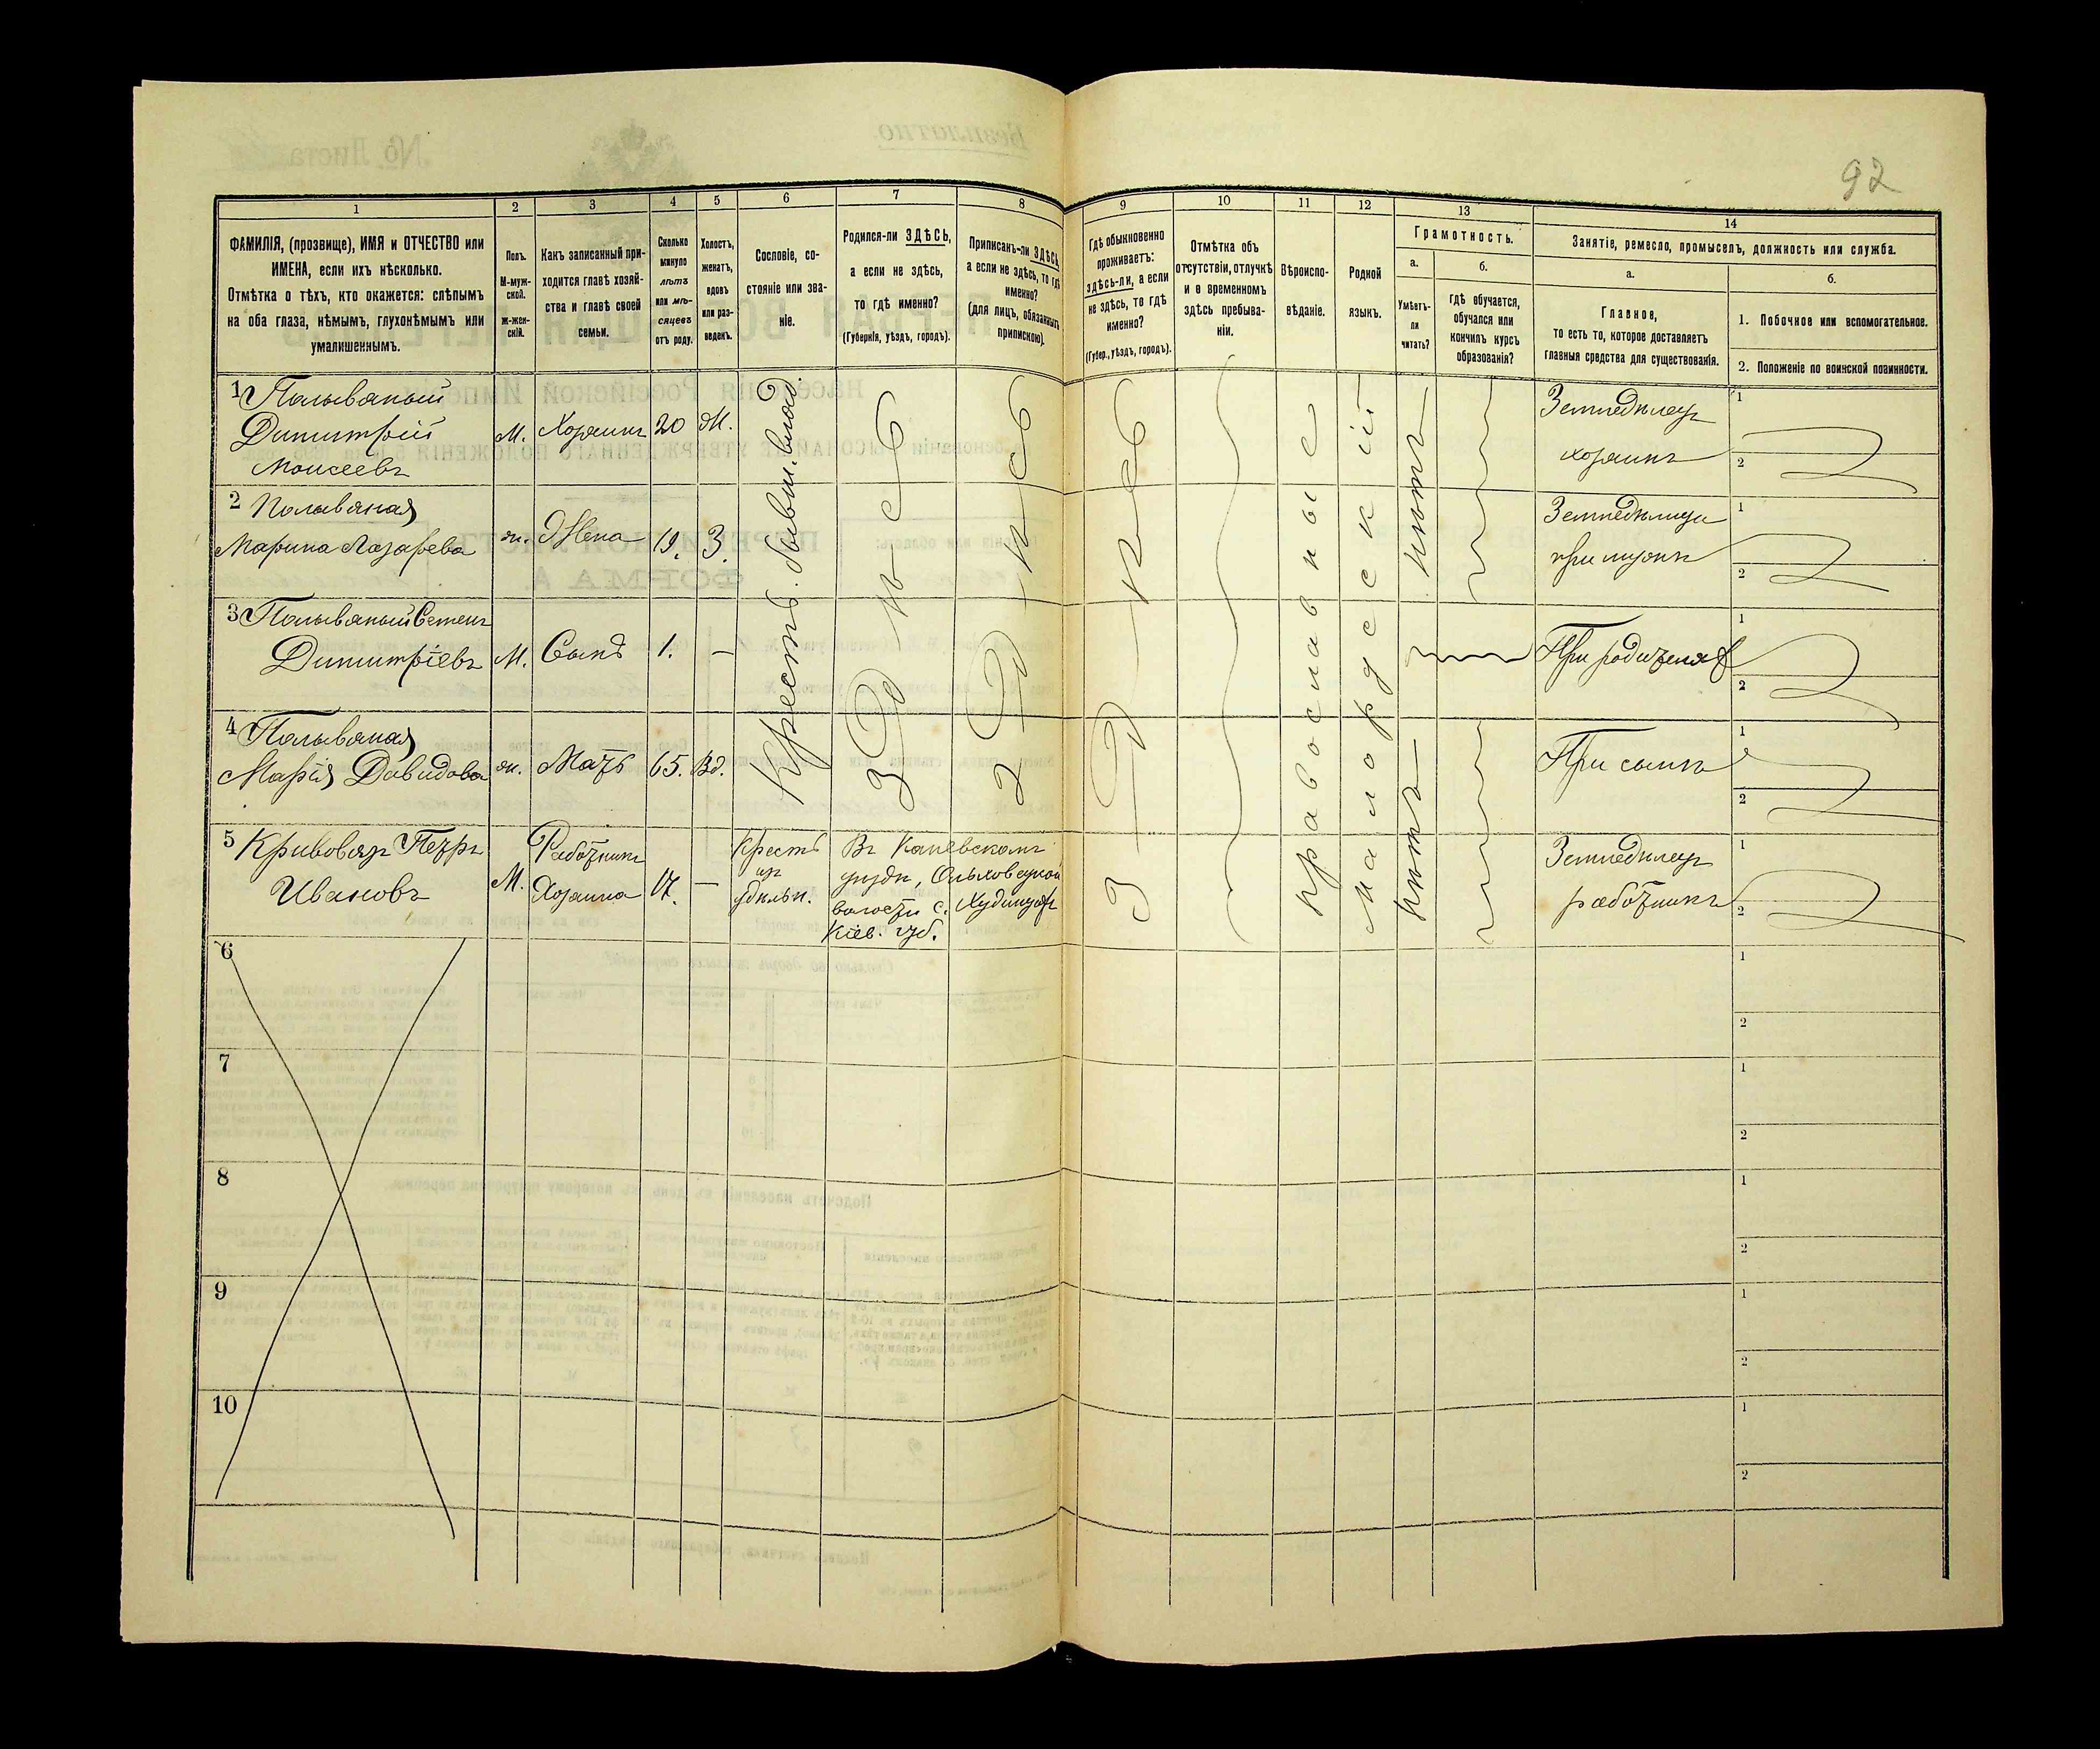 92
1
2
3
4
5
6
7
8
9
10
11
12
13
14
ФАМИЛІЯ, (прозвище), ИМЯ и ОТЧЕСТВО или
ИМЕНА, если ихъ нѣсколько.
Отмѣтка о тѣхъ, кто окажется: слѣпымъ
на оба глаза, нѣмымъ, глухонѣмымъ или
умалишеннымъ.
Полъ.
М-муж-
ской.
ж-жен-
скій.
Какъ записанный при-
ходится главѣ хозяй-
ства и главѣ своей
семьи.
Сколько
минуло
лѣтъ
или мѣ-
сяцевъ
отъ роду.
Холостъ,
женатъ,
вдовъ
или раз-
веденъ.
Сословіе, со-
стояніе или зва-
ніе.
Родился-ли ЗДѢСЬ,
а если не здѣсь,
то гдѣ именно?
(Губернія, уѣздъ, городъ).
Приписанъ-ли ЗДѢСЬ
а если не здѣсь, то гдѣ
именно?
(для лицъ, обязанныхъ
припискою).
Гдѣ обыкновенно
проживаетъ:
здѣсь-ли, а если
не здѣсь, то гдѣ
именно?
(Губер., уѣздъ, городъ).
Отмѣтка объ
отсутствіи, отлучкѣ
и о временномъ
здѣсь пребыва-
ніи.
Вѣроиспо-
вѣданіе.
Родной
языкъ.
Грамотность.
а.
Умѣетъ-
ли
читать?
б.
гдѣ обучается,
обучался или
кончилъ курсъ
образованія?
Занятіе, ремесло, промыселъ, должность или служба.
а.
Главное,
то есть то, которое доставляетъ
главныя средства для существованія.
б.
1. Побочное или вспомогательное.
2. Положеніе по воинской повинности.
1 Полывяный
Димитрій
Моисеевъ
М.
Хозяинъ
20
Ж.
Крестьян. бывш. влад.
Здѣсь
Здѣсь
Здѣсь
православные
малордсскій
нѣтъ
Земледѣлецъ
хозяинъ
1
2
2 Полывяная
Марина Лазарева
ж.
Жена
19.
З.
Земледѣлица
при мужѣ
1
2
3 Полывяный Семенъ
Димитріевъ
М.
Сынъ
1.
—
При родителях
1
2
4 Полывяная
Марія Давидова
ж.
Мать
65.
Вд.
нѣтъ
При сынѣ
1
2
5 Кривовяз Петръ
Ивановъ
М.
Работникъ
Хозяина
17.
—
Крестъ
из
удѣльн.
Въ Каневскомъ
уѣздѣ, Ольховецкой
волости с. Худяцах
Кіев. губ.
Земледѣлецъ
работникъ
1
2
6
1
2
7
1
2
8
1
2
9
1
2
10
1
2